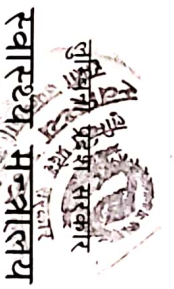 लुम्बिनी प्रदेश सरकार
स्वास्थ्य मन्त्रालय